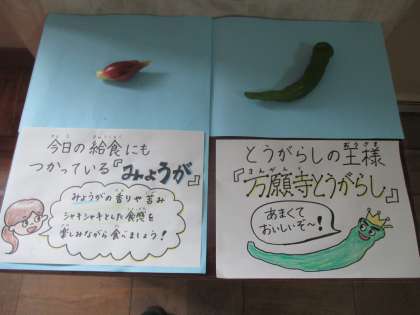 今日の給食にも
つかっている『みょうが』
みょうがの香りや苦み
シャキシャキとした食感を
楽しみながら食べましょう！
とうがらしの王様
『万願寺とうがらし』
あまくて
おいしいぞ～！